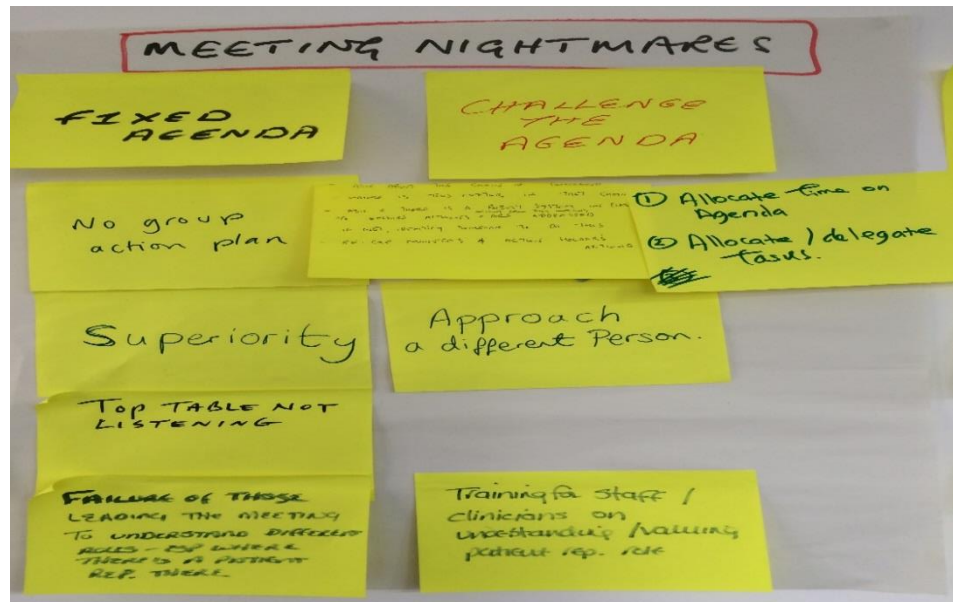 MEETING NIGHTMARES
FIXED
AGENDA
CHALLENGE
THE
AGENDA
No group
action plan
IS THERE IS A
TO ENSURE
IF NOT, IDENTIFY SOMEONE TO DO THIS
① Allocate time on
Agenda
② Allocate / delegate
tasks.
Superiority
Approach
a different Person.
TOP TABLE NOT
LISTENING
FAILURE OF THOSE
LEADING THE MEETING
TO UNDERSTAND DIFFERENT
ROLES - ESP WHERE
THERE'S A PATIENT
REP. THERE
Training for staff /
clinicians on
understanding / valuing
patient rep. role